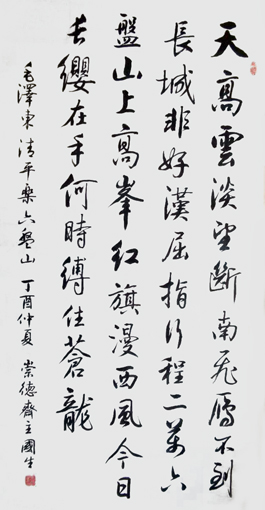 天高雲淡望斷南飛雁不到
長城非好漢屈指行程二萬六
盤山上高峯紅旗漫西風今日
長纓在手何時縛住蒼龍
毛澤東清平樂六盤山 丁酉仲夏 崇德齋主國生